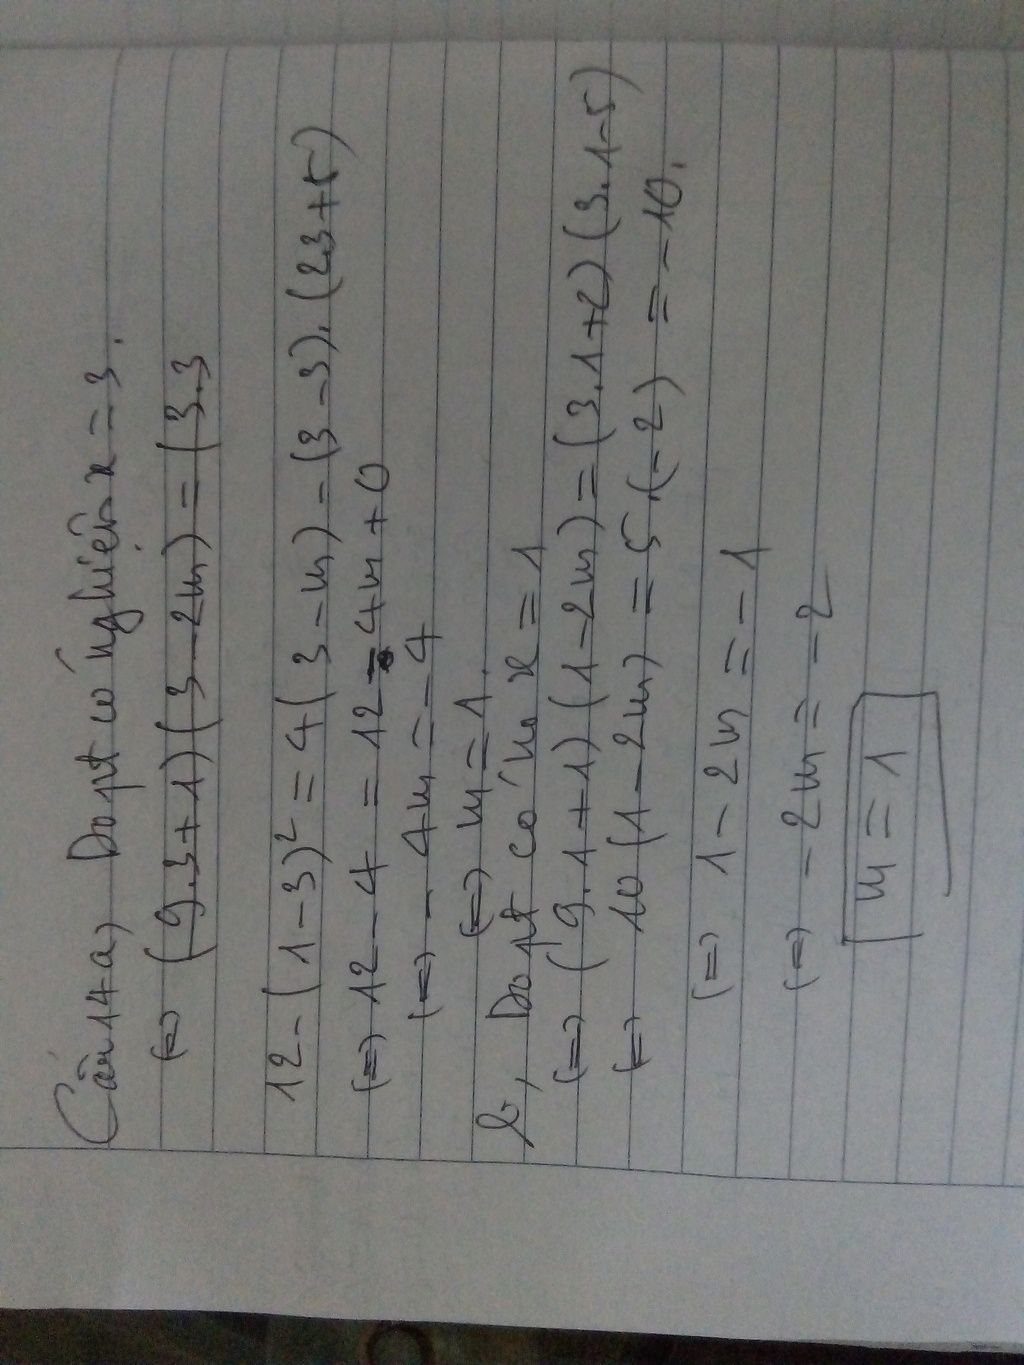 Câu 14 a, Do pt có nghiệm x = 3.
(=) (9.3+1)(3-2m) = (3.3
12-(1-3)² = 4(3-m) - (3-3).(2.3+5)
(=) 12-4 = 12-4m+0
(=) -4m = -4
(=) m = 1.
b, Do pt có no x = 1
(=) (9.1+1)(1-2m) = (3.1+2)(3.1-5)
(=) 10(1-2m) = 5.(-2) = -10.
(=) 1-2m = -1
(=) -2m = -2
m = 1